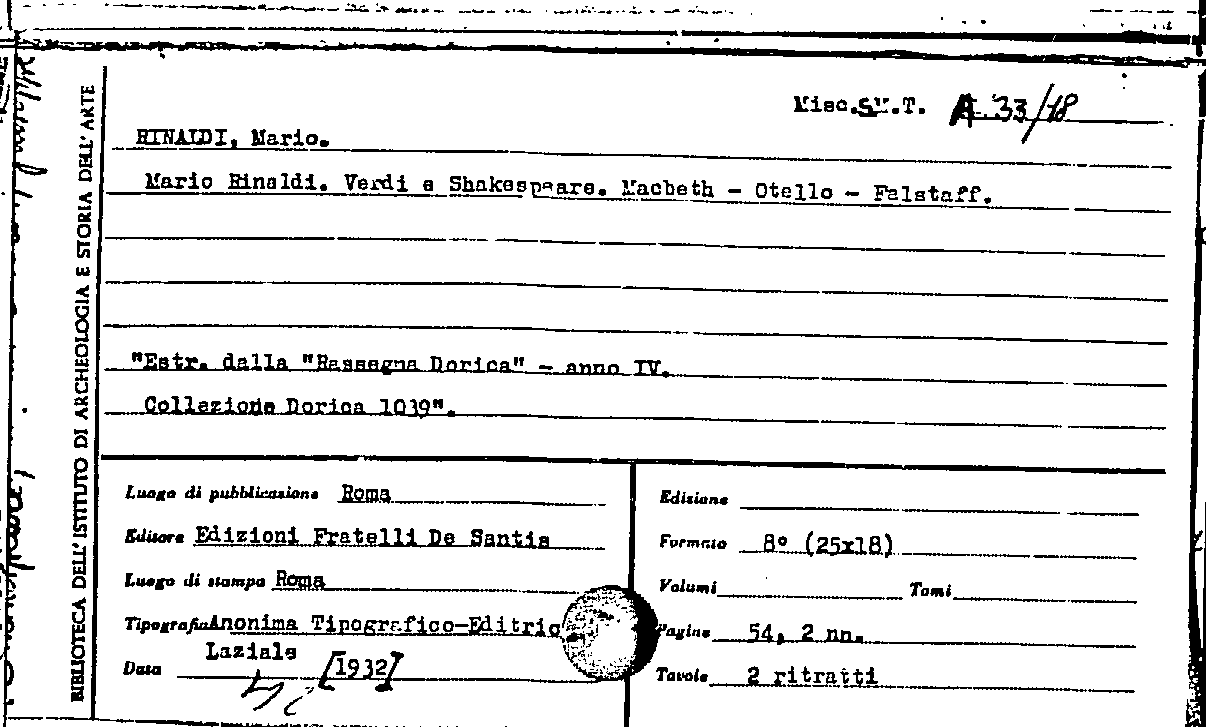 Misc.S".T. A.33/18
RINALDI, Mario.
Mario Rinaldi. Verdi e Shakespeare. Macbeth - Otello - Falstaff.
"Estr. dalla "Rassegna Dorica" - anno IV.
Collezione Dorica 1039".
Luogo di pubblicazione Roma
Editore Edizioni Fratelli De Santis
Luogo di stampa Roma
Tipografia Anonima Tipografico-Editric
Laziale
Data [1932]
Edizione
Formato 8° (25x18)
Volumi Tomi
Pagine 54, 2 nn.
Tavole 2 ritratti
BIBLIOTECA DELL' ISTITUTO DI ARCHEOLOGIA E STORIA DELL' ARTE